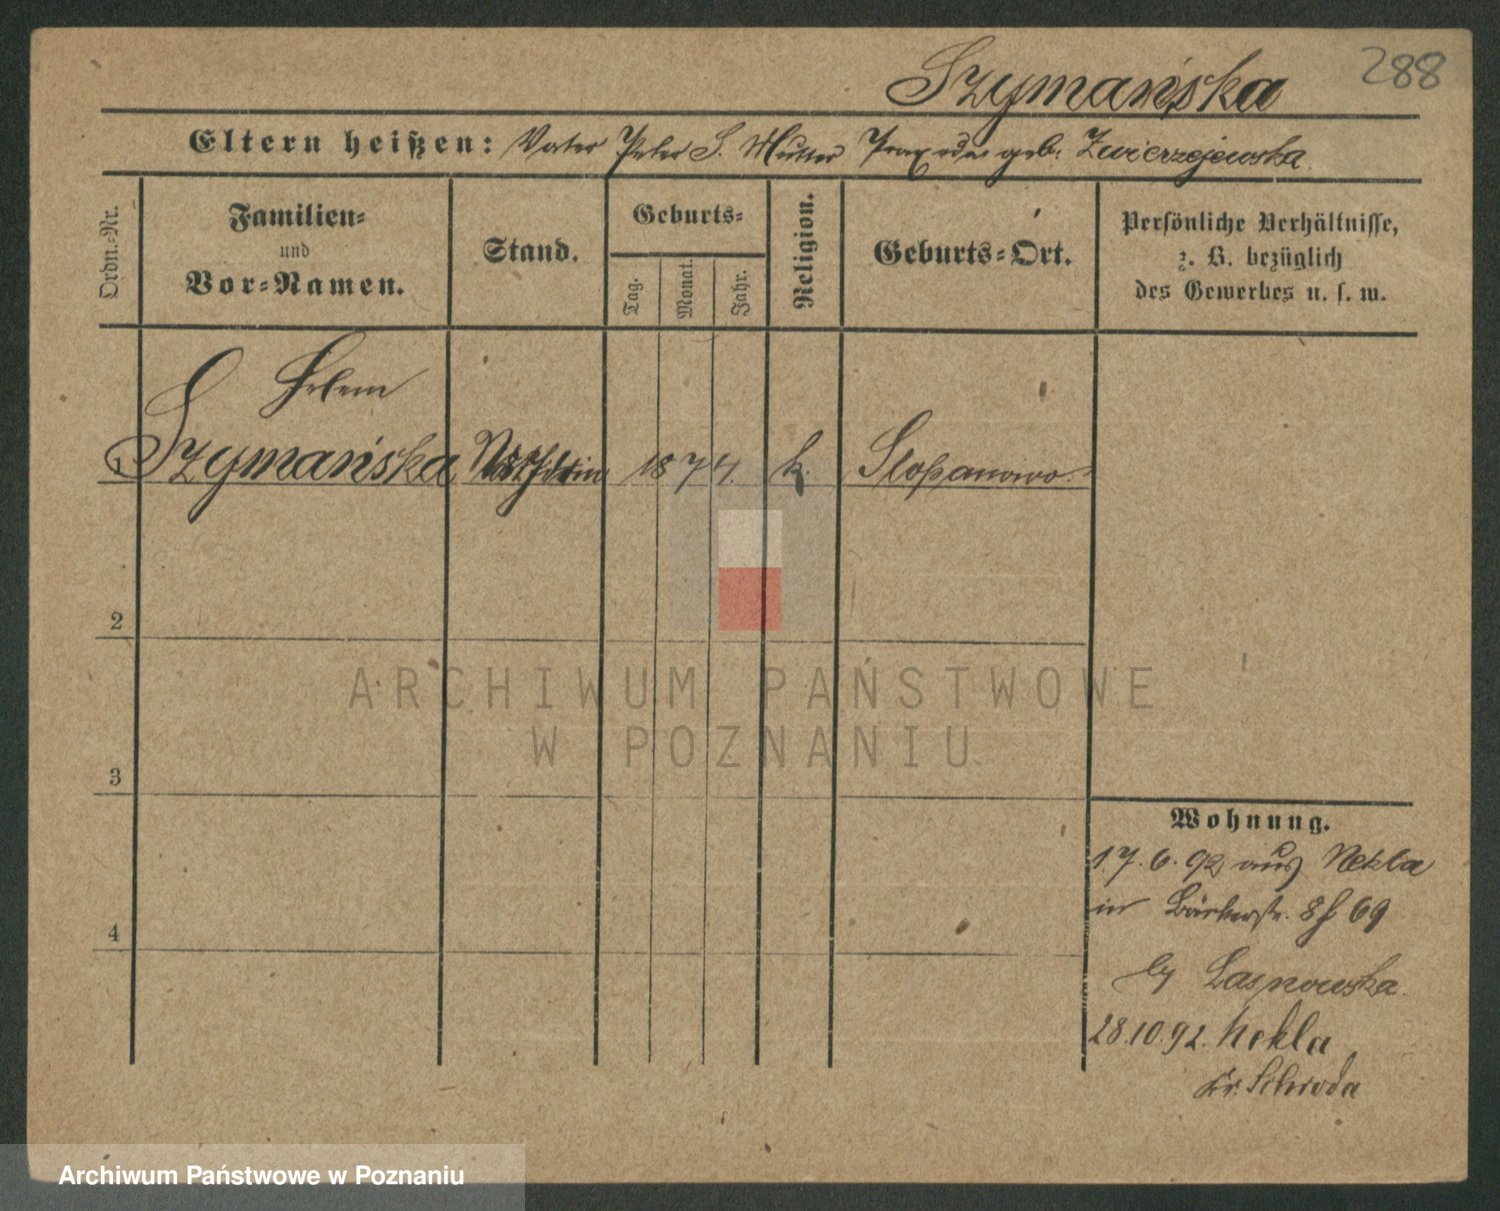 Szymańska 288
Eltern heißen: Vater Peter S. Mutter Praxedes geb: Zwierzejewska
Ordn.=Nr.
Familien=
und
Vor=Namen.
Stand.
Geburts=
Tag.
Monat.
Jahr.
Religion.
Geburts=Ort.
Persönliche Verhältnisse,
z. B. bezüglich
des Gewerbes u. s. w.
Helena
1 Szymańska 1874. k. Slopanowo
2
3
4
Wohnung.
17.6.92 aus Nekla
in Bäckerstr. 8 69
28.10.92. Nekla
Kr. Schroda
ARCHIWUM PAŃSTWOWE
W POZNANIU
Archiwum Państwowe w Poznaniu